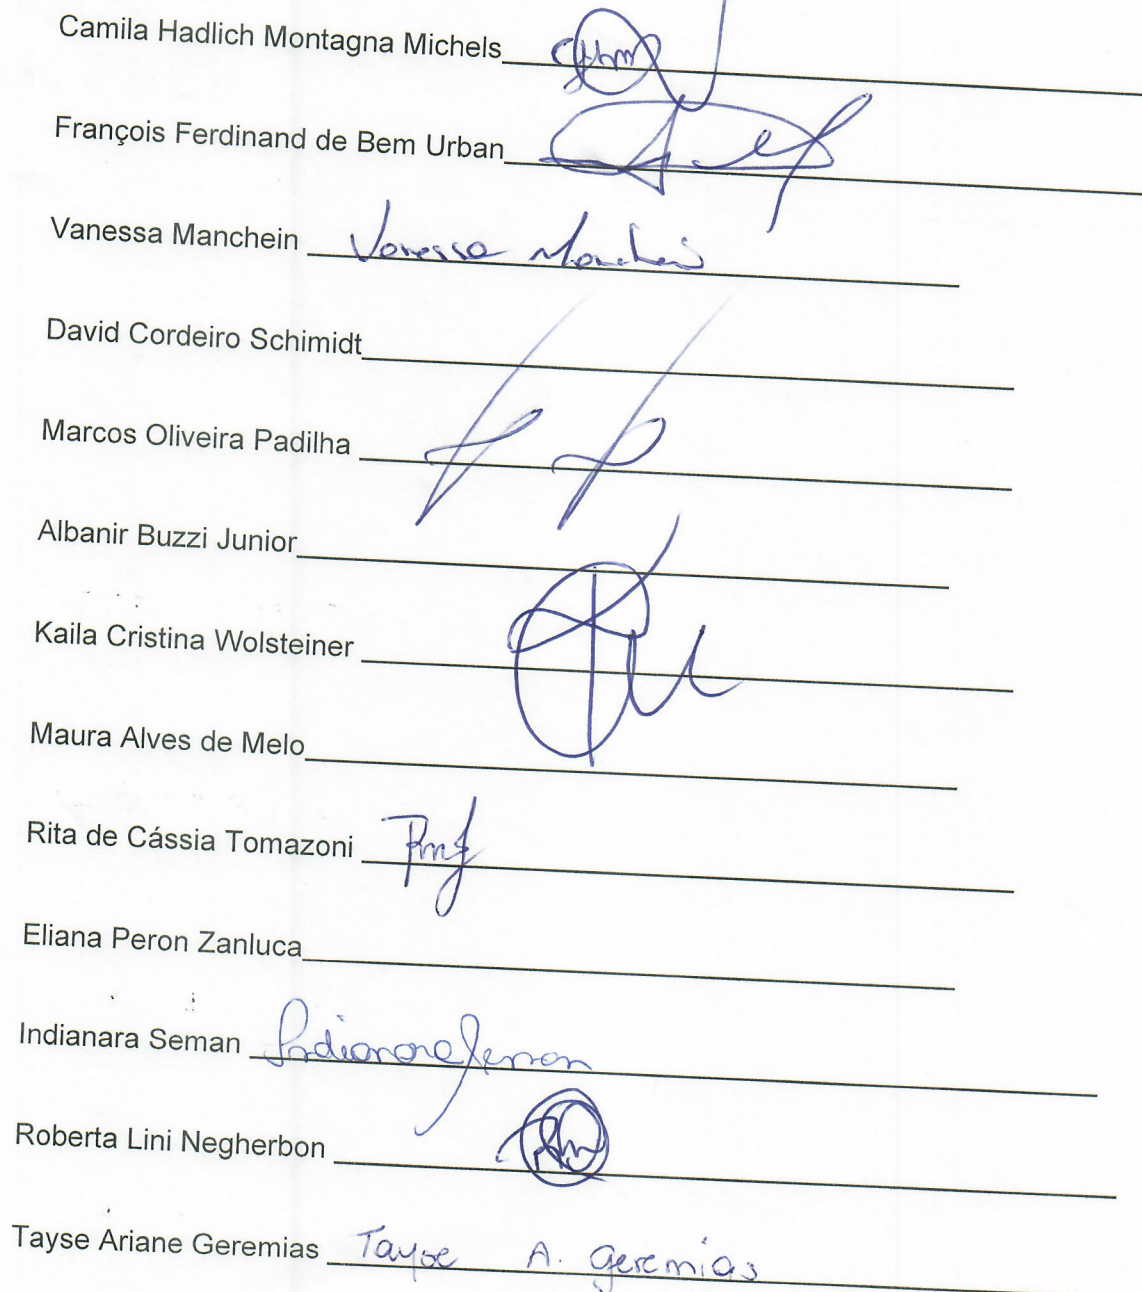 Camila Hadlich Montagna Michels
François Ferdinand de Bem Urban
Vanessa Manchein Vanessa Manchein
David Cordeiro Schimidt
Marcos Oliveira Padilha
Albanir Buzzi Junior
Kaila Cristina Wolsteiner
Maura Alves de Melo
Rita de Cássia Tomazoni
Eliana Peron Zanluca
Indianara Seman Indianara Seman
Roberta Lini Negherbon
Tayse Ariane Geremias Tayse A. Geremias